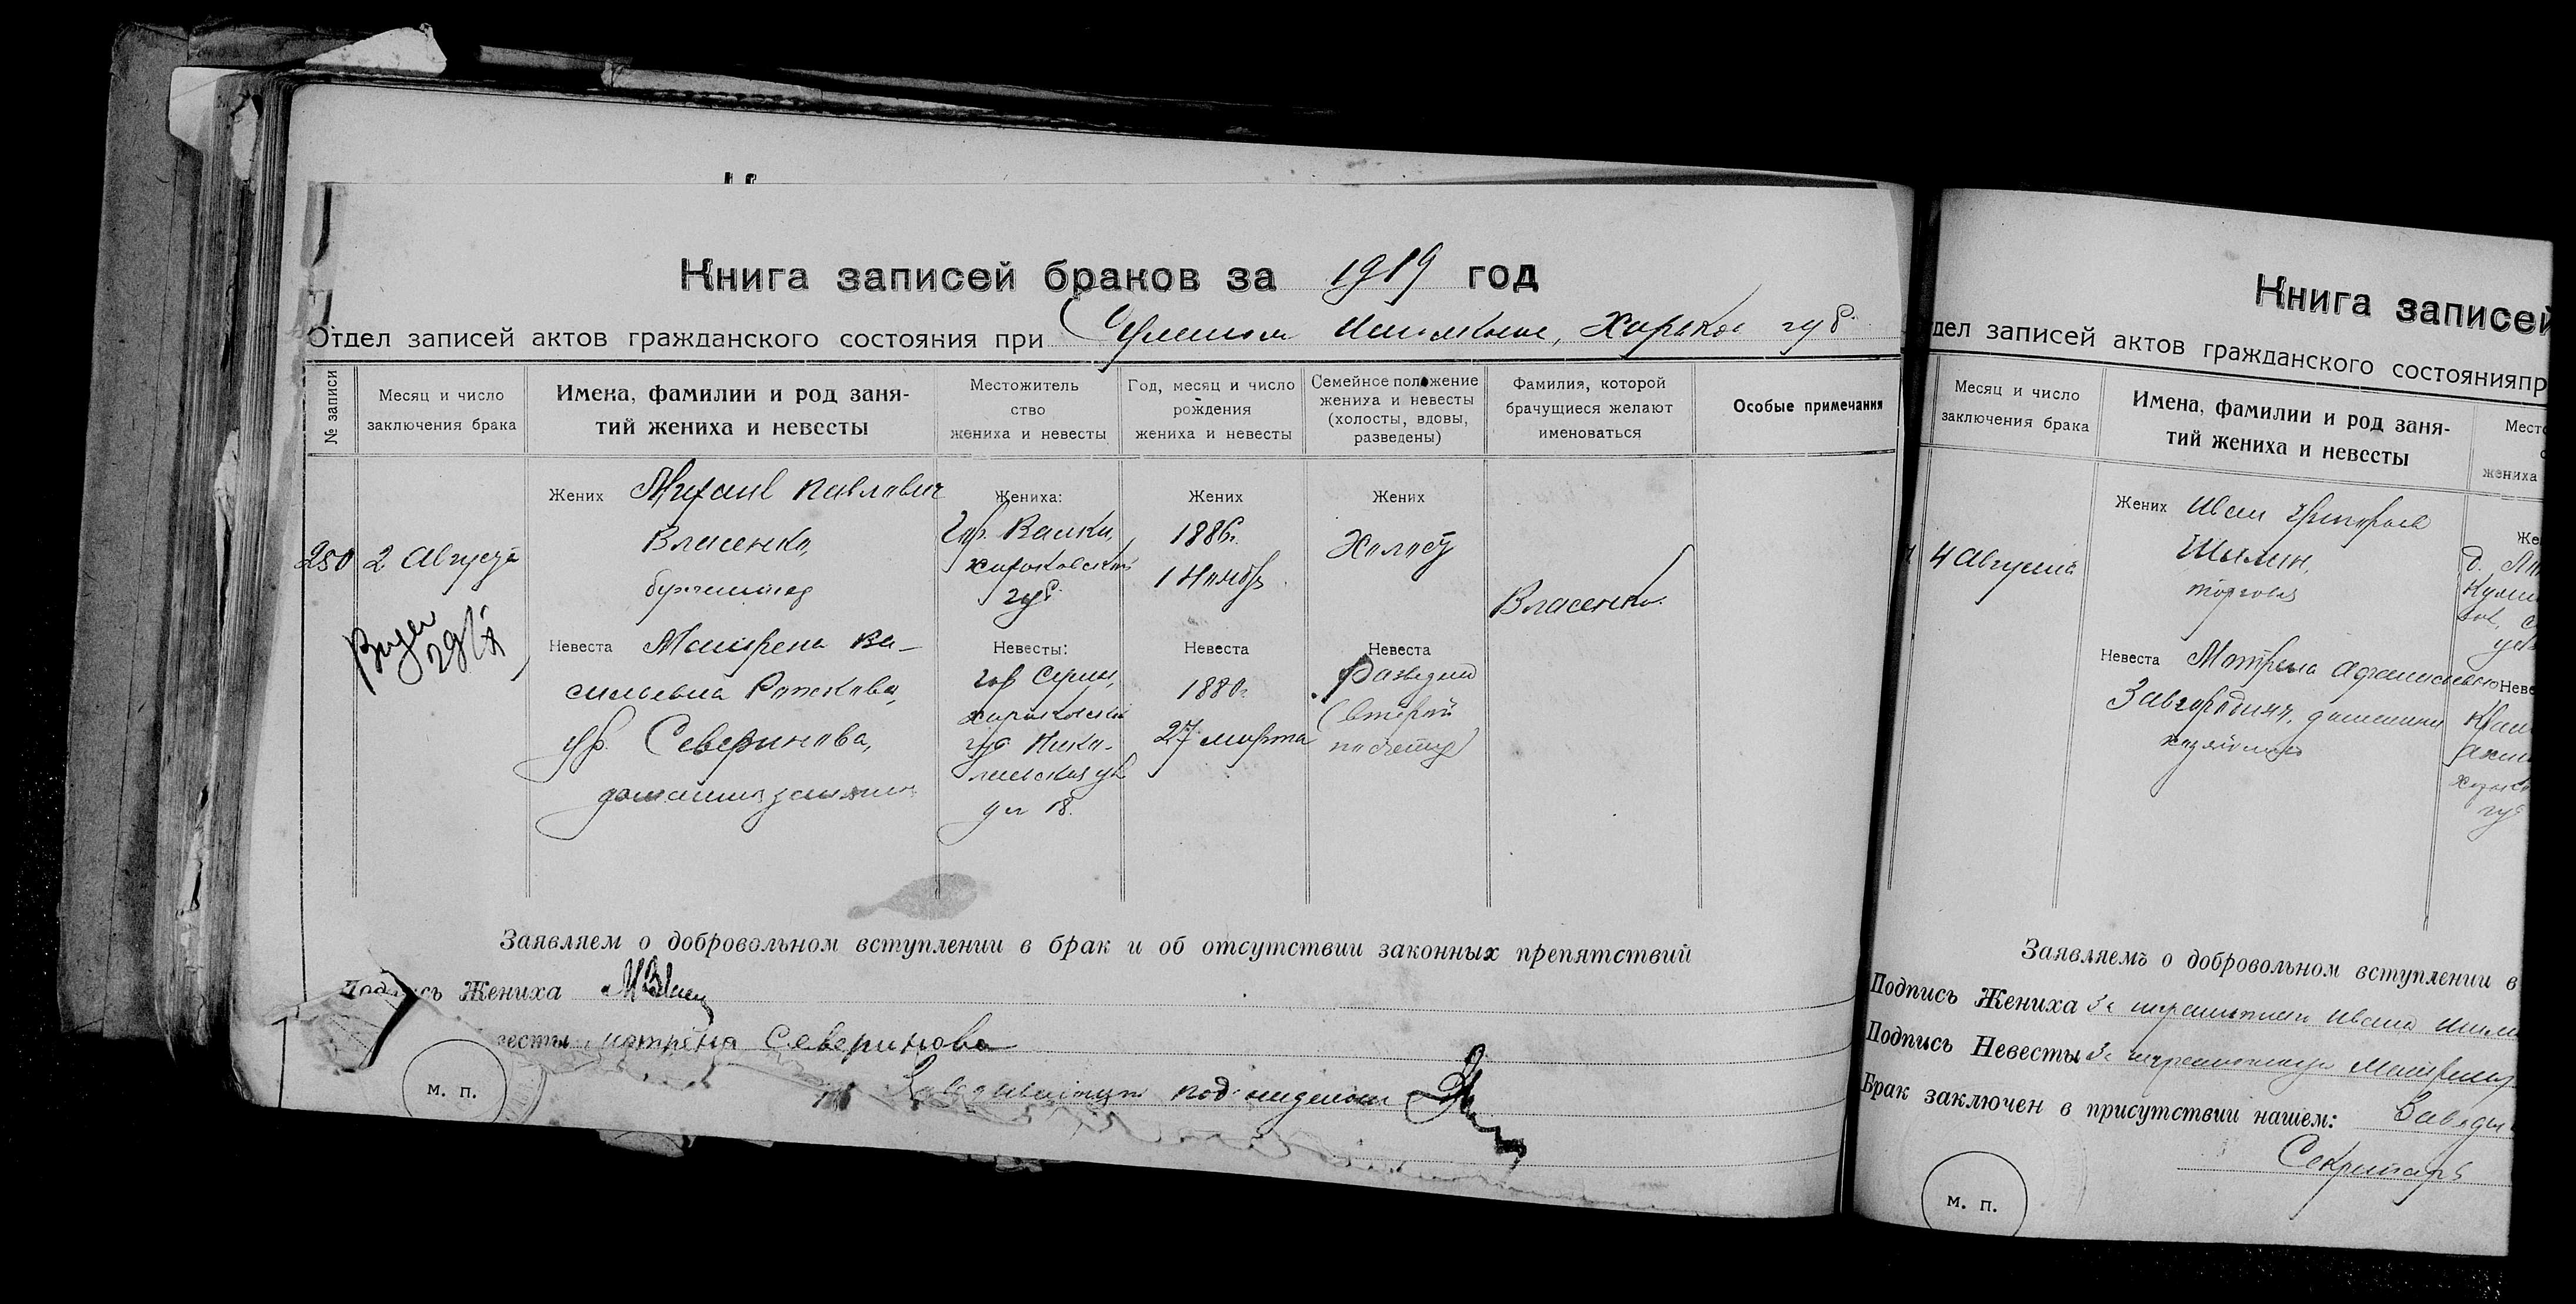 Книга записей браков за 1919 год
Отдел записей актов гражданского состояния при Сумском Исполкоме, Харьков губ.
№ записи
Месяц и число
заключения брака
Имена, фамилии и род заня-
тий жениха и невесты
Местожитель
ство
жениха и невесты
Год, месяц и число
рождения
жениха и невесты
Семейное положение
жениха и невесты
(холосты, вдовы,
разведены)
Фамилия, которой
брачущиеся желают
именоваться
Особые примечания
280
2 Августа
Жених Михаил Павлович
Власенко,
Жениха:
гор. Валки,
харьковской
губ.
Жених
1886г.
1 Ноябр
Жених
Холост
Власенко.
Невеста Матрена Ва-
сильевна Рожкова,
ур. Северинова,
домашния занятия
Невесты:
гор Сумы,
харьковской
губ Нико-
лаевская ул
д № 18.
Невеста
1880г
27 марта
Невеста
Разведена
(вторый
по счету)
Заявляем о добровольном вступлении в брак и об отсутствии законных препятствий
Подпись Жениха МВлас
весты матрёна Северинова
Заведывающий подотделом
м. п.
Книга записей
дел записей актов гражданского состоянияпр
Месяц и число
заключения брака
Имена, фамилии и род заня-
тий жениха и невесты
Место
жениха
4 Августа
Жених Иван Григорьев
торговля
Же
Невеста Мотрена Афанасьевна
Завгородняя, домашняя
хозяйка
Неве
губ
Заявляемъ о добровольном вступлении в
Подпись Жениха За неграмотного Ивана
Подпись Невесты За неграмотную Матрену
Брак заключен в присутствии нашем: Заведы
Секретарь
м. п.